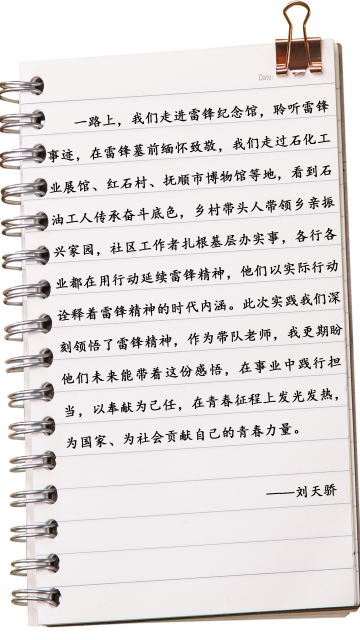 Date:
一路上，我们走进雷锋纪念馆，聆听雷锋
事迹，在雷锋墓前缅怀致敬，我们走过石化工
业展馆、红石村、抚顺市博物馆等地，看到石
油工人传承奋斗底色，乡村带头人带领乡亲振
兴家园，社区工作者扎根基层办实事，各行各
业都在用行动延续雷锋精神，他们以实际行动
诠释着雷锋精神的时代内涵。此次实践我们深
刻领悟了雷锋精神，作为带队老师，我更期盼
他们未来能带着这份感悟，在事业中践行担
当，以奉献为己任，在青春征程上发光发热，
为国家、为社会贡献自己的青春力量。
——刘天骄